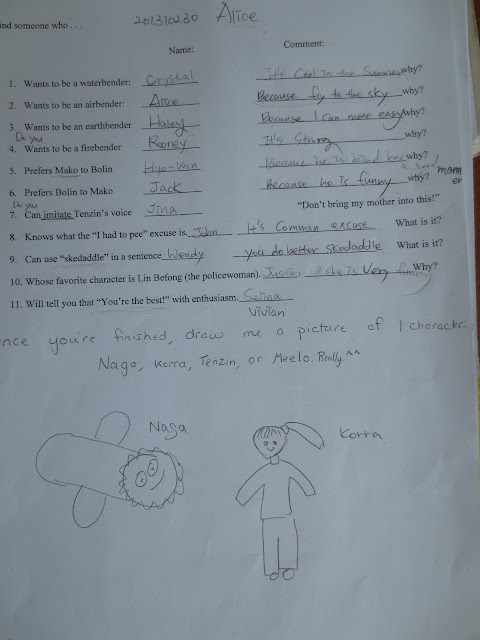 ind someone who . . . 201310230 Alice.
Name: Comment:
1. Wants to be a waterbender: Crystal It's Cool in the Summer why?
2. Wants to be an airbender: Alice Because fly to the sky why?
3. Wants to be an earthbender Haley Because I can more easy why?
Do you
4. Wants to be a firebender Rooney It's Strong why?
5. Prefers Mako to Bolin Hye-won Because he is kind why?
6. Prefers Bolin to Mako Jack Because he is funny why? manner
Do you
7. Can imitate Tenzin's voice Jina "Don't bring my mother into this!"
8. Knows what the "I had to pee" excuse is. John It's Common excuse What is it?
9. Can use "skedaddle" in a sentence Wendy you do better skedaddle What is it?
10. Whose favorite character is Lin Befong (the policewoman). Justin she is Very funny Why?
11. Will tell you that "You're the best!" with enthusiasm. Selina
Vivian
nce you're finished, draw me a picture of 1 character:
Naga, Korra, Tenzin, or Meelo. Really. ^^
Naga Korra